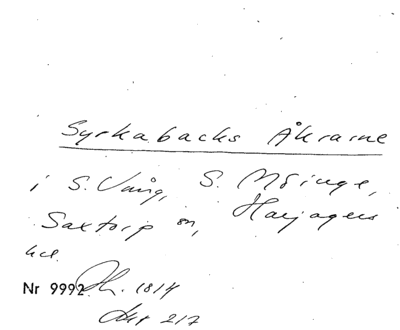 Syrkabacks Åkrarne
i S. Vång, S. Möinge,
Saxtorp sn, Harjagers
hd.
Nr 9992. Dh. 1814
Akt 217